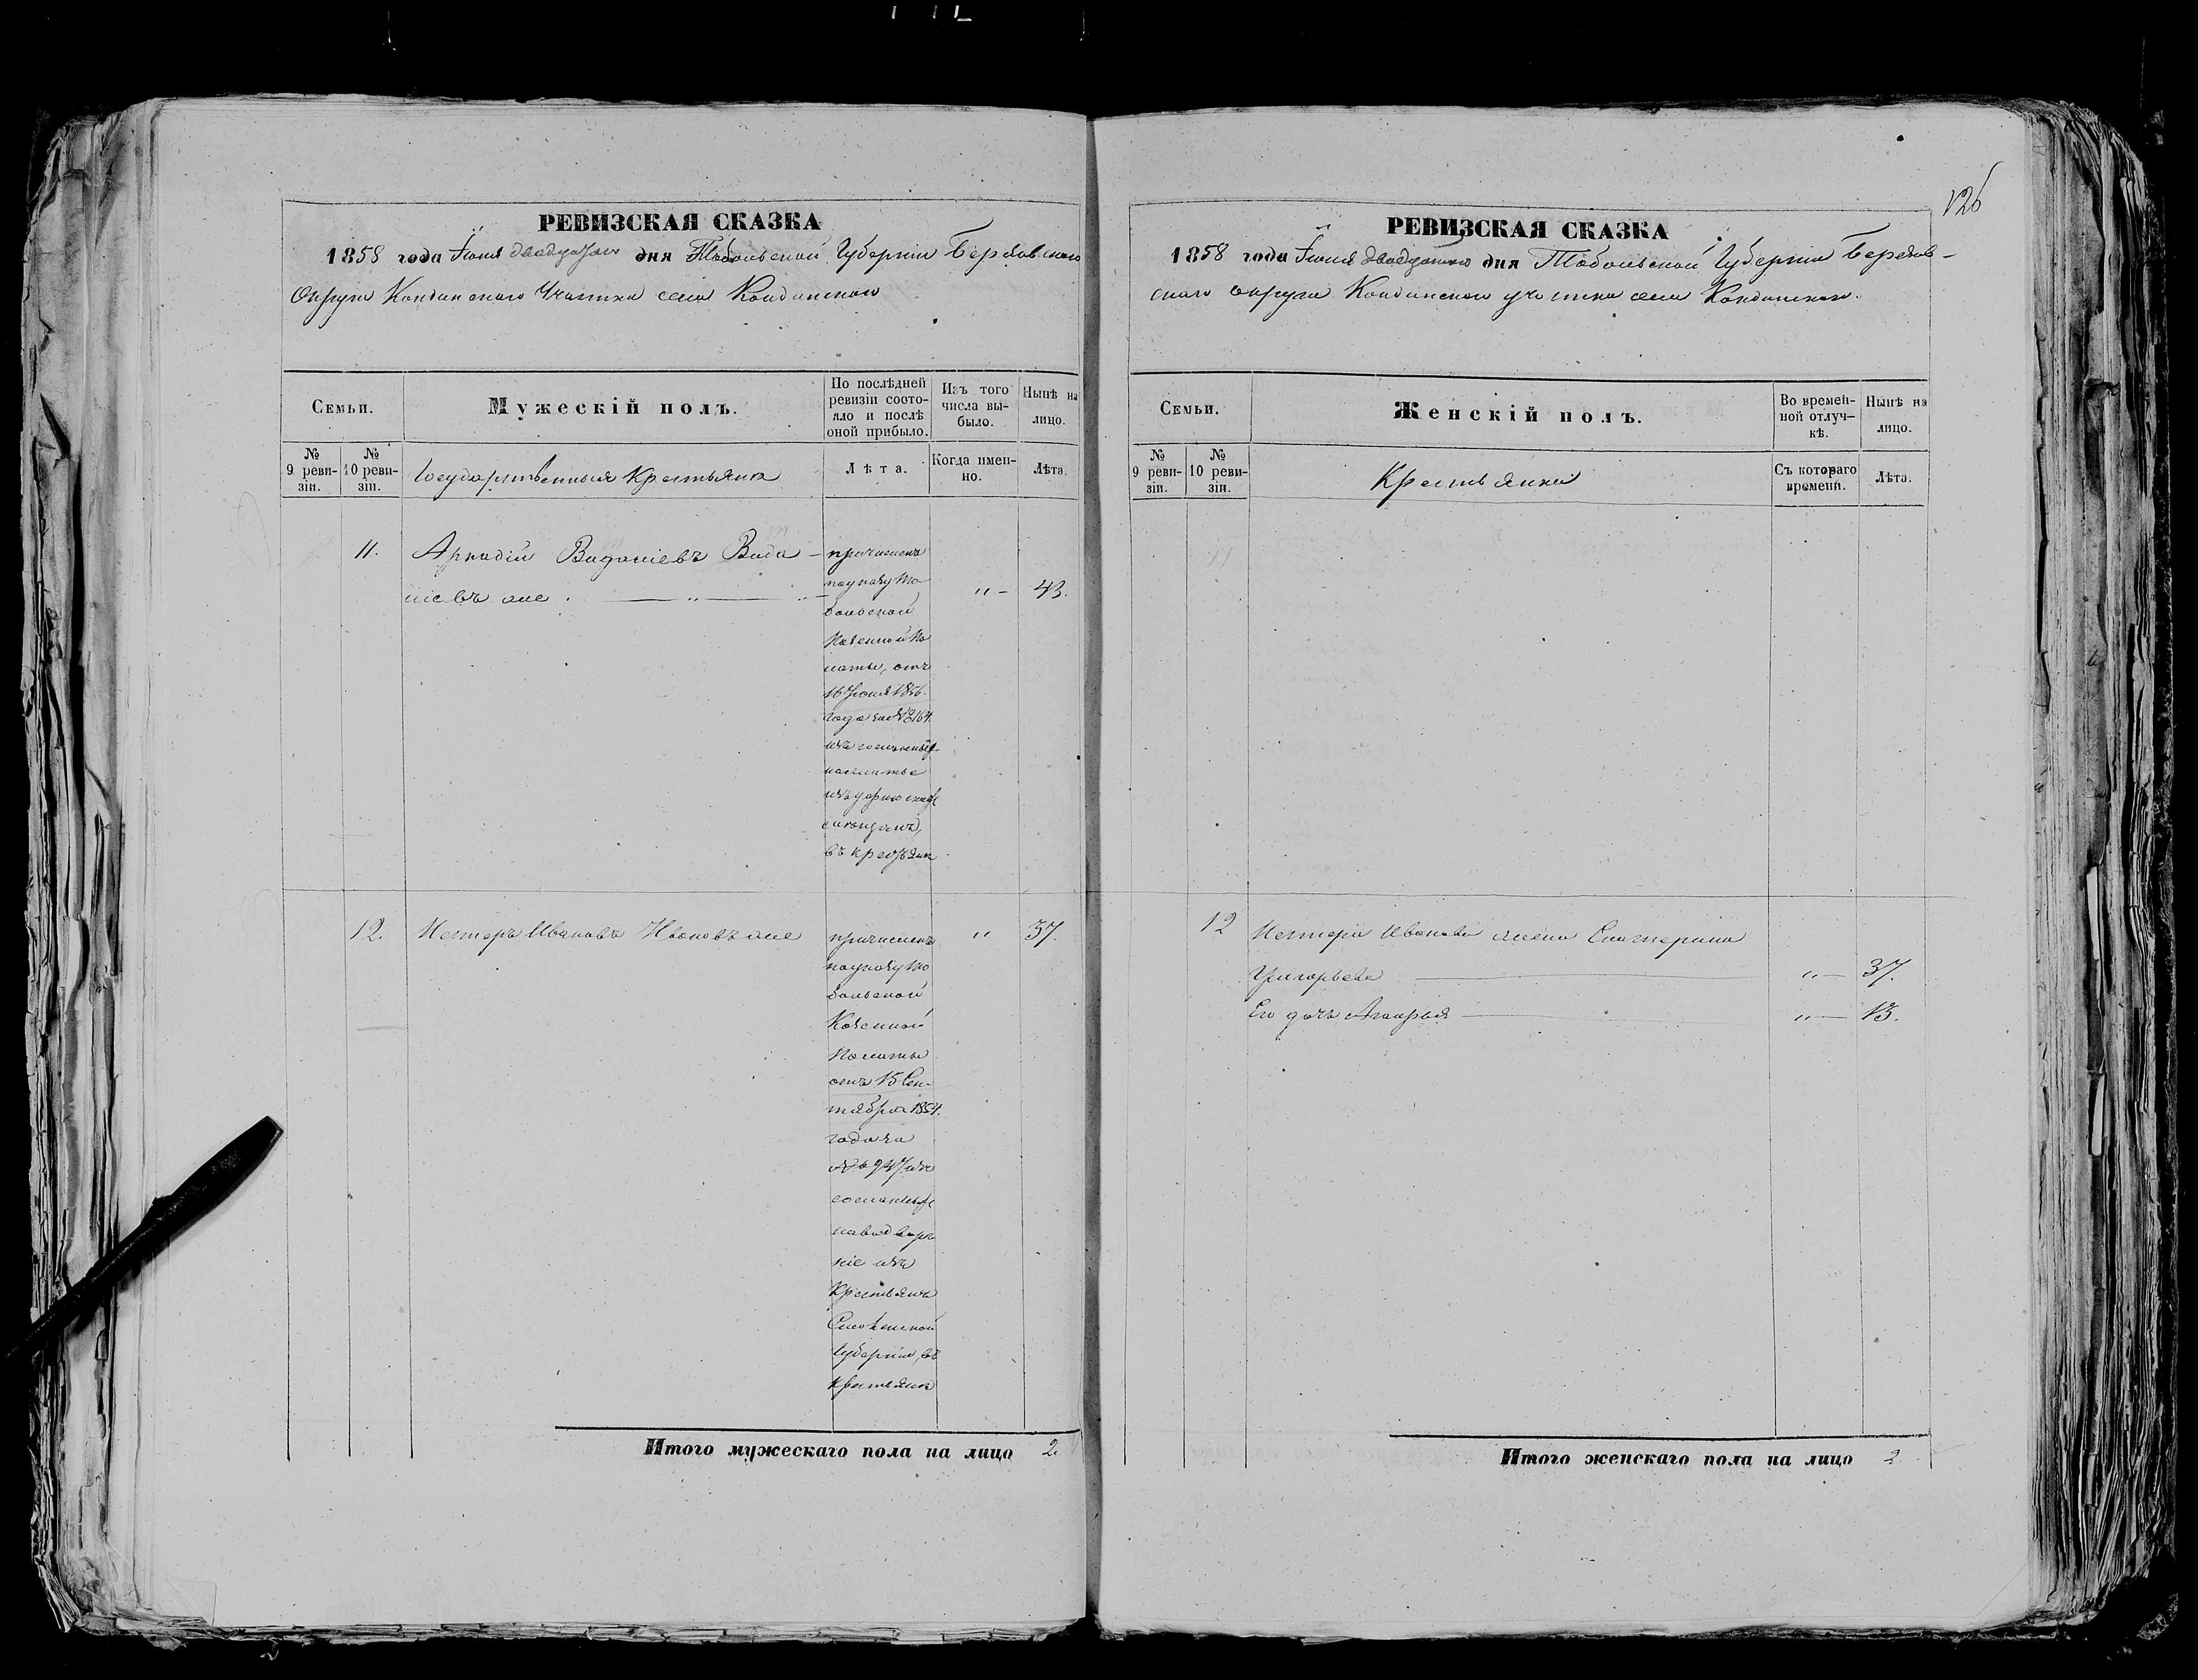 РЕВИЗСКАЯ СКАЗКА
1858 года Іюня двадцатаго дня Тобольской Губерніи Березовскаго
Округа Кондинскаго Участка села Кондинскаго
Семьи.
Мужескій полъ.
По послѣдней ревизіи состояло и послѣ оной прибыло.
Изъ того числа выбыло.
Нынѣ на лицо.
№ 9 реви-зіи.
№ 10 реви-зіи.
Государственныя Крестьяна
Лѣта.
Когда имен-но.
Лѣта.
11.
Аркадій Виданіевъ Вида-
ніевъ же
причисленъ
по указу То
больской
Казенной Па
латы, отъ
16 Іюня 1856.
года за №
изъ сосланныхъ
въ крестьян
" -
43.
12.
Нестеръ Ивановъ Ивановъ же
причисленъ
по указу То
больской
Казенной
Палаты
отъ 15 Сен-
тября 1854.
года за
№ 947 изъ
сосланныхъ
на водворе
ніе изъ
Крестьянъ
Губерніи, въ
крестьяне
"
37.
Итого мужескаго пола на лицо 2.
126
РЕВИЗСКАЯ СКАЗКА
1858 года Іюня двадцатаго дня Тобольской Губерніи Березов-
скаго округа Кондинскаго участка села Кондинскаго.
Семьи.
Женскій полъ.
Во времен-ной отлуч-кѣ.
Нынѣ на лицо.
№ 9 реви-зіи.
№ 10 реви-зіи.
Крестьянки
Съ котораго времени.
Лѣта.
11
12
Нестера Иванова жена Екатерина
Григорьева " - 37.
Его дочь " - 13.
Итого женскаго пола на лицо 2